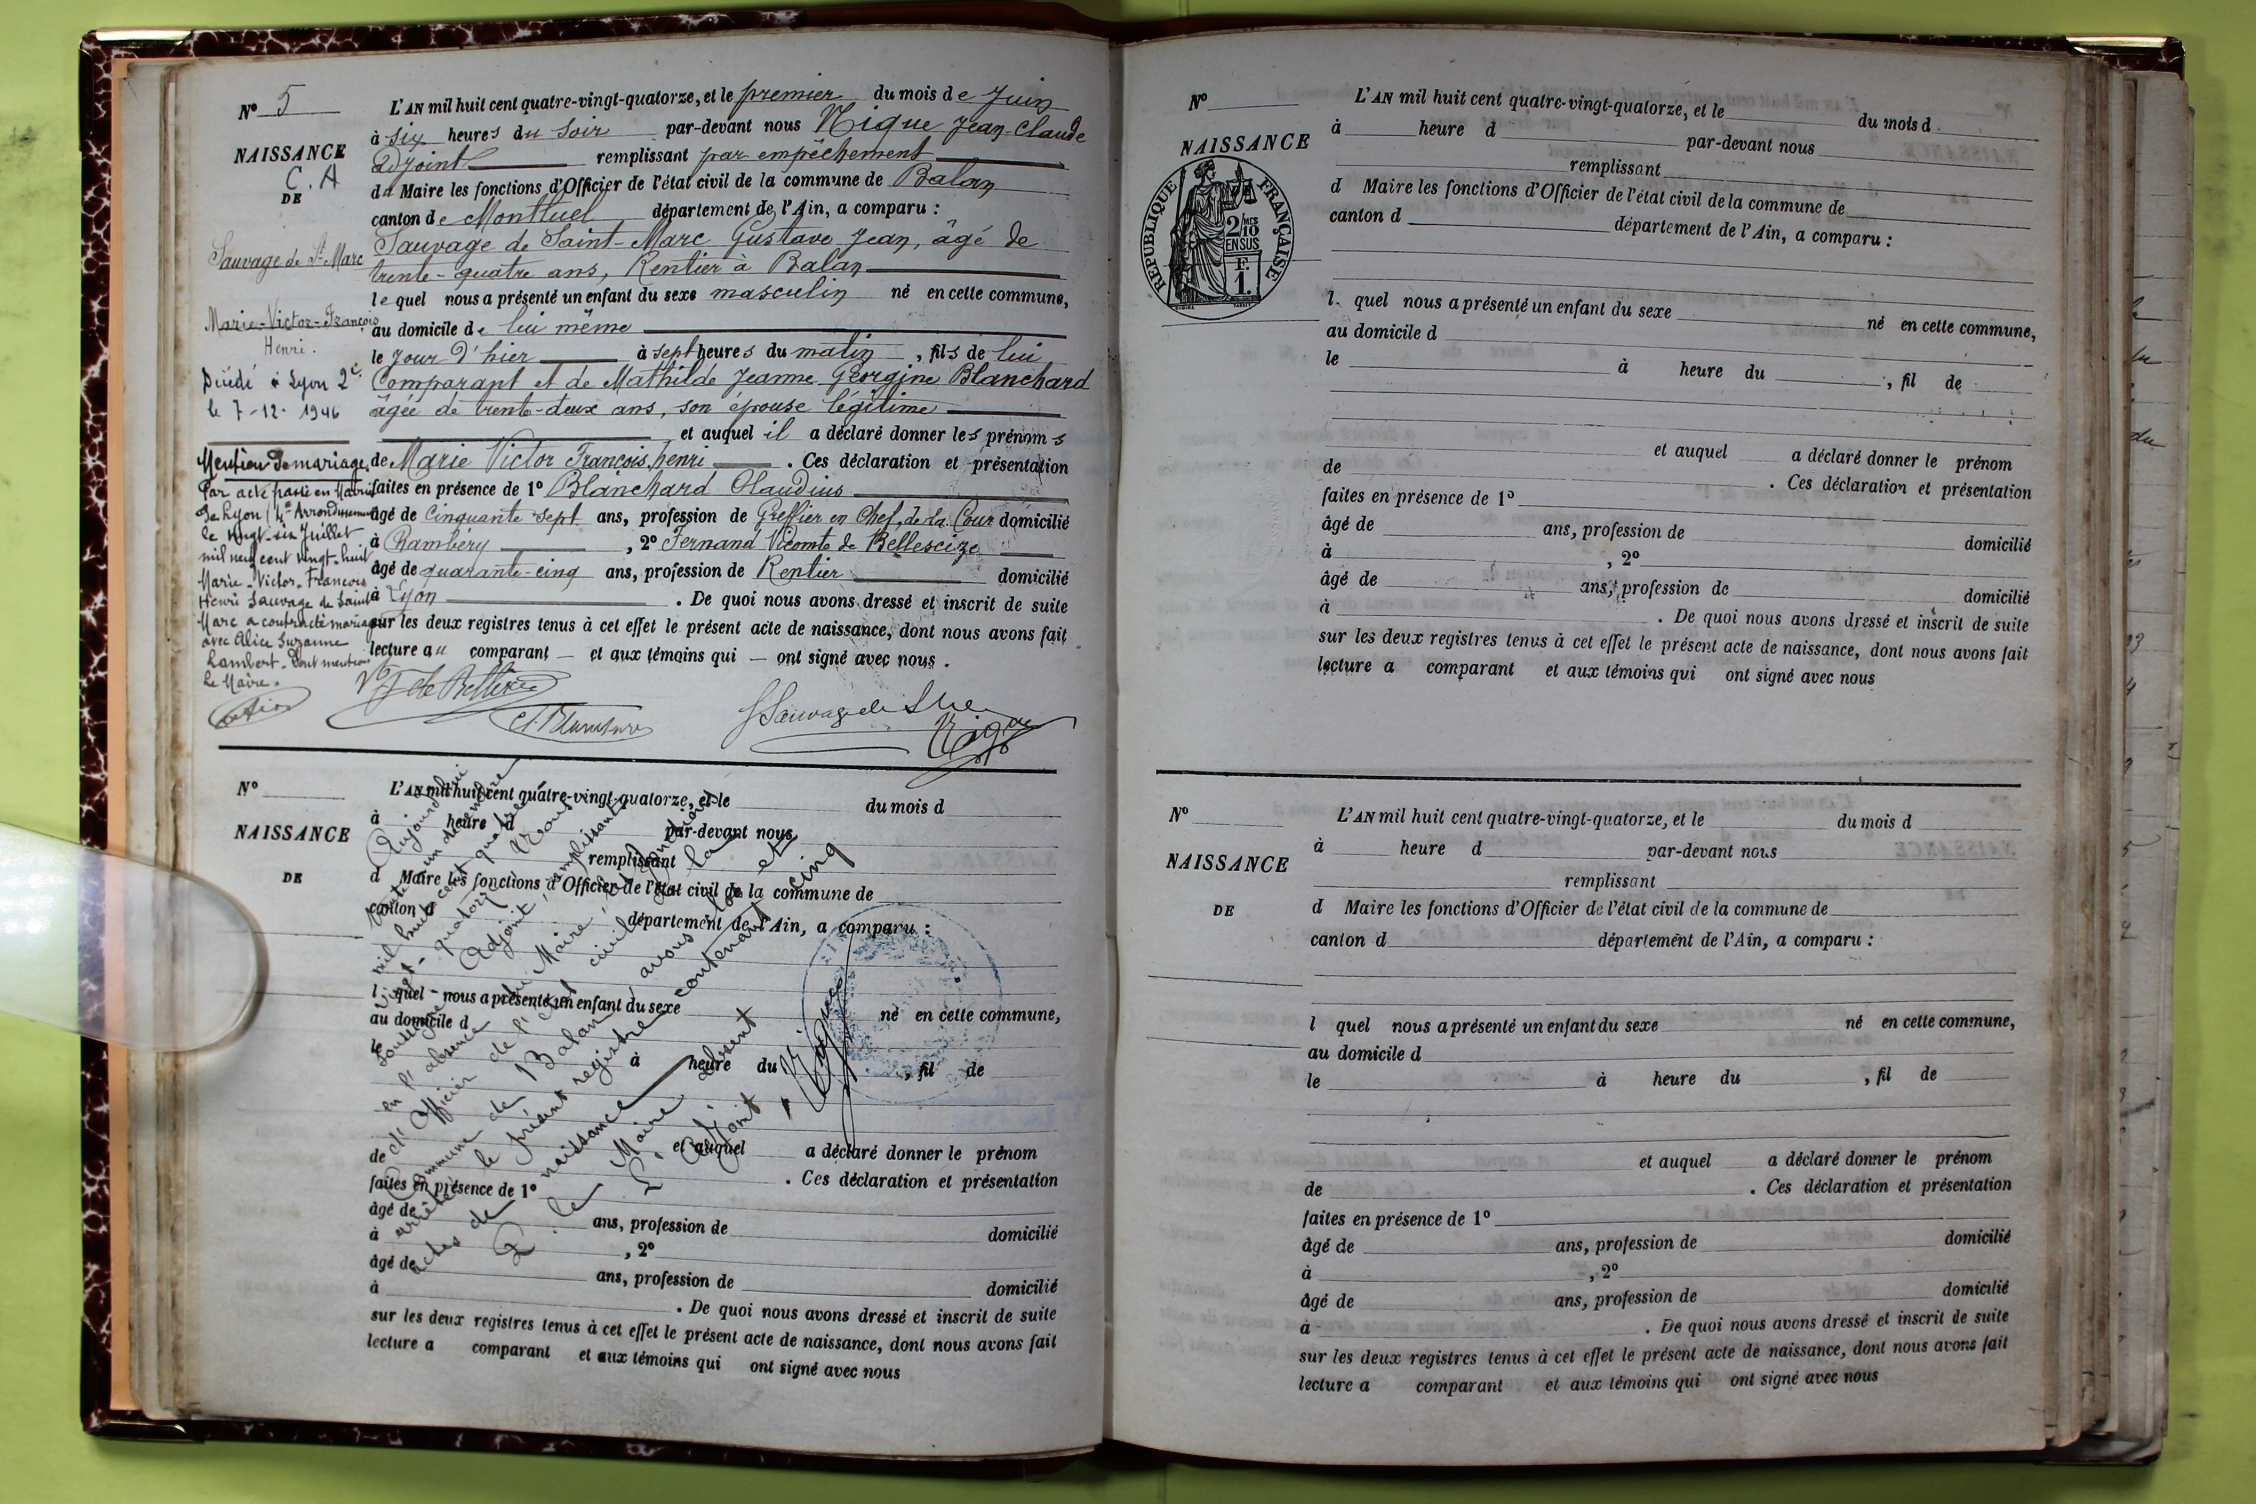 N° 5
NAISSANCE
C. A
DE
Sauvage de St Marc
Marie-Victor-François
Henri.
Décédé à Lyon 2e
le 7-12-1946
Mention de mariage
Par acte passé en Mairie
de Lyon (4e Arrondissement
le vingt-six Juillet
mil neuf cent vingt-huit
Marie-Victor-François
Henri Sauvage de Saint
Marc a contracté mariage
avec Alice Suzanne
Lambert. Dont mention
Le Maire.
L'AN mil huit cent quatre-vingt-quatorze, et le premier du mois de Juin
à six heures du soir par-devant nous Nique Jean-Claude
Adjoint remplissant par empêchement
du Maire les fonctions d'Officier de l'état civil de la commune de Balan
canton de Montluel département de l'Ain, a comparu :
Sauvage de Saint-Marc Gustave Jean, âgé de
trente-quatre ans, Rentier à Balan
lequel nous a présenté un enfant du sexe masculin né en cette commune,
au domicile de lui même
le jour d'hier à sept heures du matin, fils de lui
Comparant et de Mathilde Jeanne Georgine Blanchard
âgée de trente-deux ans, son épouse légitime
et auquel il a déclaré donner les prénoms
de Marie Victor François henri. Ces déclaration et présentation
faites en présence de 1° Blanchard Claudius
âgé de Cinquante sept ans, profession de Greffier en Chef de la Cour domicilié
à Chambery, 2° Fernand Vicomte de Bellescize
âgé de quarante-cinq ans, profession de Rentier domicilié
à Lyon. De quoi nous avons dressé et inscrit de suite
sur les deux registres tenus à cet effet le présent acte de naissance, dont nous avons fait
lecture au comparant et aux témoins qui ont signé avec nous.
Cl. Blanchard
Nique
N°
NAISSANCE
DE
L'AN mil huit cent quatre-vingt-quatorze, et le du mois d
à heure d par-devant nous
remplissant
d Maire les fonctions d'Officier de l'état civil de la commune de
canton d département de l'Ain, a comparu :
l quel nous a présenté un enfant du sexe né en cette commune,
au domicile d
le à heure du , fil de
et auquel a déclaré donner le prénom
de . Ces déclaration et présentation
faites en présence de 1°
âgé de ans, profession de domicilié
à , 2°
âgé de ans, profession de domicilié
à . De quoi nous avons dressé et inscrit de suite
sur les deux registres tenus à cet effet le présent acte de naissance, dont nous avons fait
lecture a comparant et aux témoins qui ont signé avec nous
Aujourd'hui
trente un décembre
mil huit cent quatre
vingt-quatorze Nous
soussigné Adjoint, remplissant
en l'absence du Maire, les fonctions
d'Officier de l'état civil de la
Commune de Balan, avons clos et
arrêté le présent registre contenant cinq
actes de naissance
P. le Maire absent
L'Adjoint
Nique
N°
NAISSANCE
RÉPUBLIQUE FRANÇAISE
2/10 MES
EN SUS
F.
1.
L'AN mil huit cent quatre-vingt-quatorze, et le du mois d
à heure d par-devant nous
remplissant
d Maire les fonctions d'Officier de l'état civil de la commune de
canton d département de l'Ain, a comparu :
l quel nous a présenté un enfant du sexe né en cette commune,
au domicile d
le à heure du , fil de
et auquel a déclaré donner le prénom
de . Ces déclaration et présentation
faites en présence de 1°
âgé de ans, profession de domicilié
à , 2°
âgé de ans, profession de domicilié
à . De quoi nous avons dressé et inscrit de suite
sur les deux registres tenus à cet effet le présent acte de naissance, dont nous avons fait
lecture a comparant et aux témoins qui ont signé avec nous
N°
NAISSANCE
DE
L'AN mil huit cent quatre-vingt-quatorze, et le du mois d
à heure d par-devant nous
remplissant
d Maire les fonctions d'Officier de l'état civil de la commune de
canton d département de l'Ain, a comparu :
l quel nous a présenté un enfant du sexe né en cette commune,
au domicile d
le à heure du , fil de
et auquel a déclaré donner le prénom
de . Ces déclaration et présentation
faites en présence de 1°
âgé de ans, profession de domicilié
à , 2°
âgé de ans, profession de domicilié
à . De quoi nous avons dressé et inscrit de suite
sur les deux registres tenus à cet effet le présent acte de naissance, dont nous avons fait
lecture a comparant et aux témoins qui ont signé avec nous